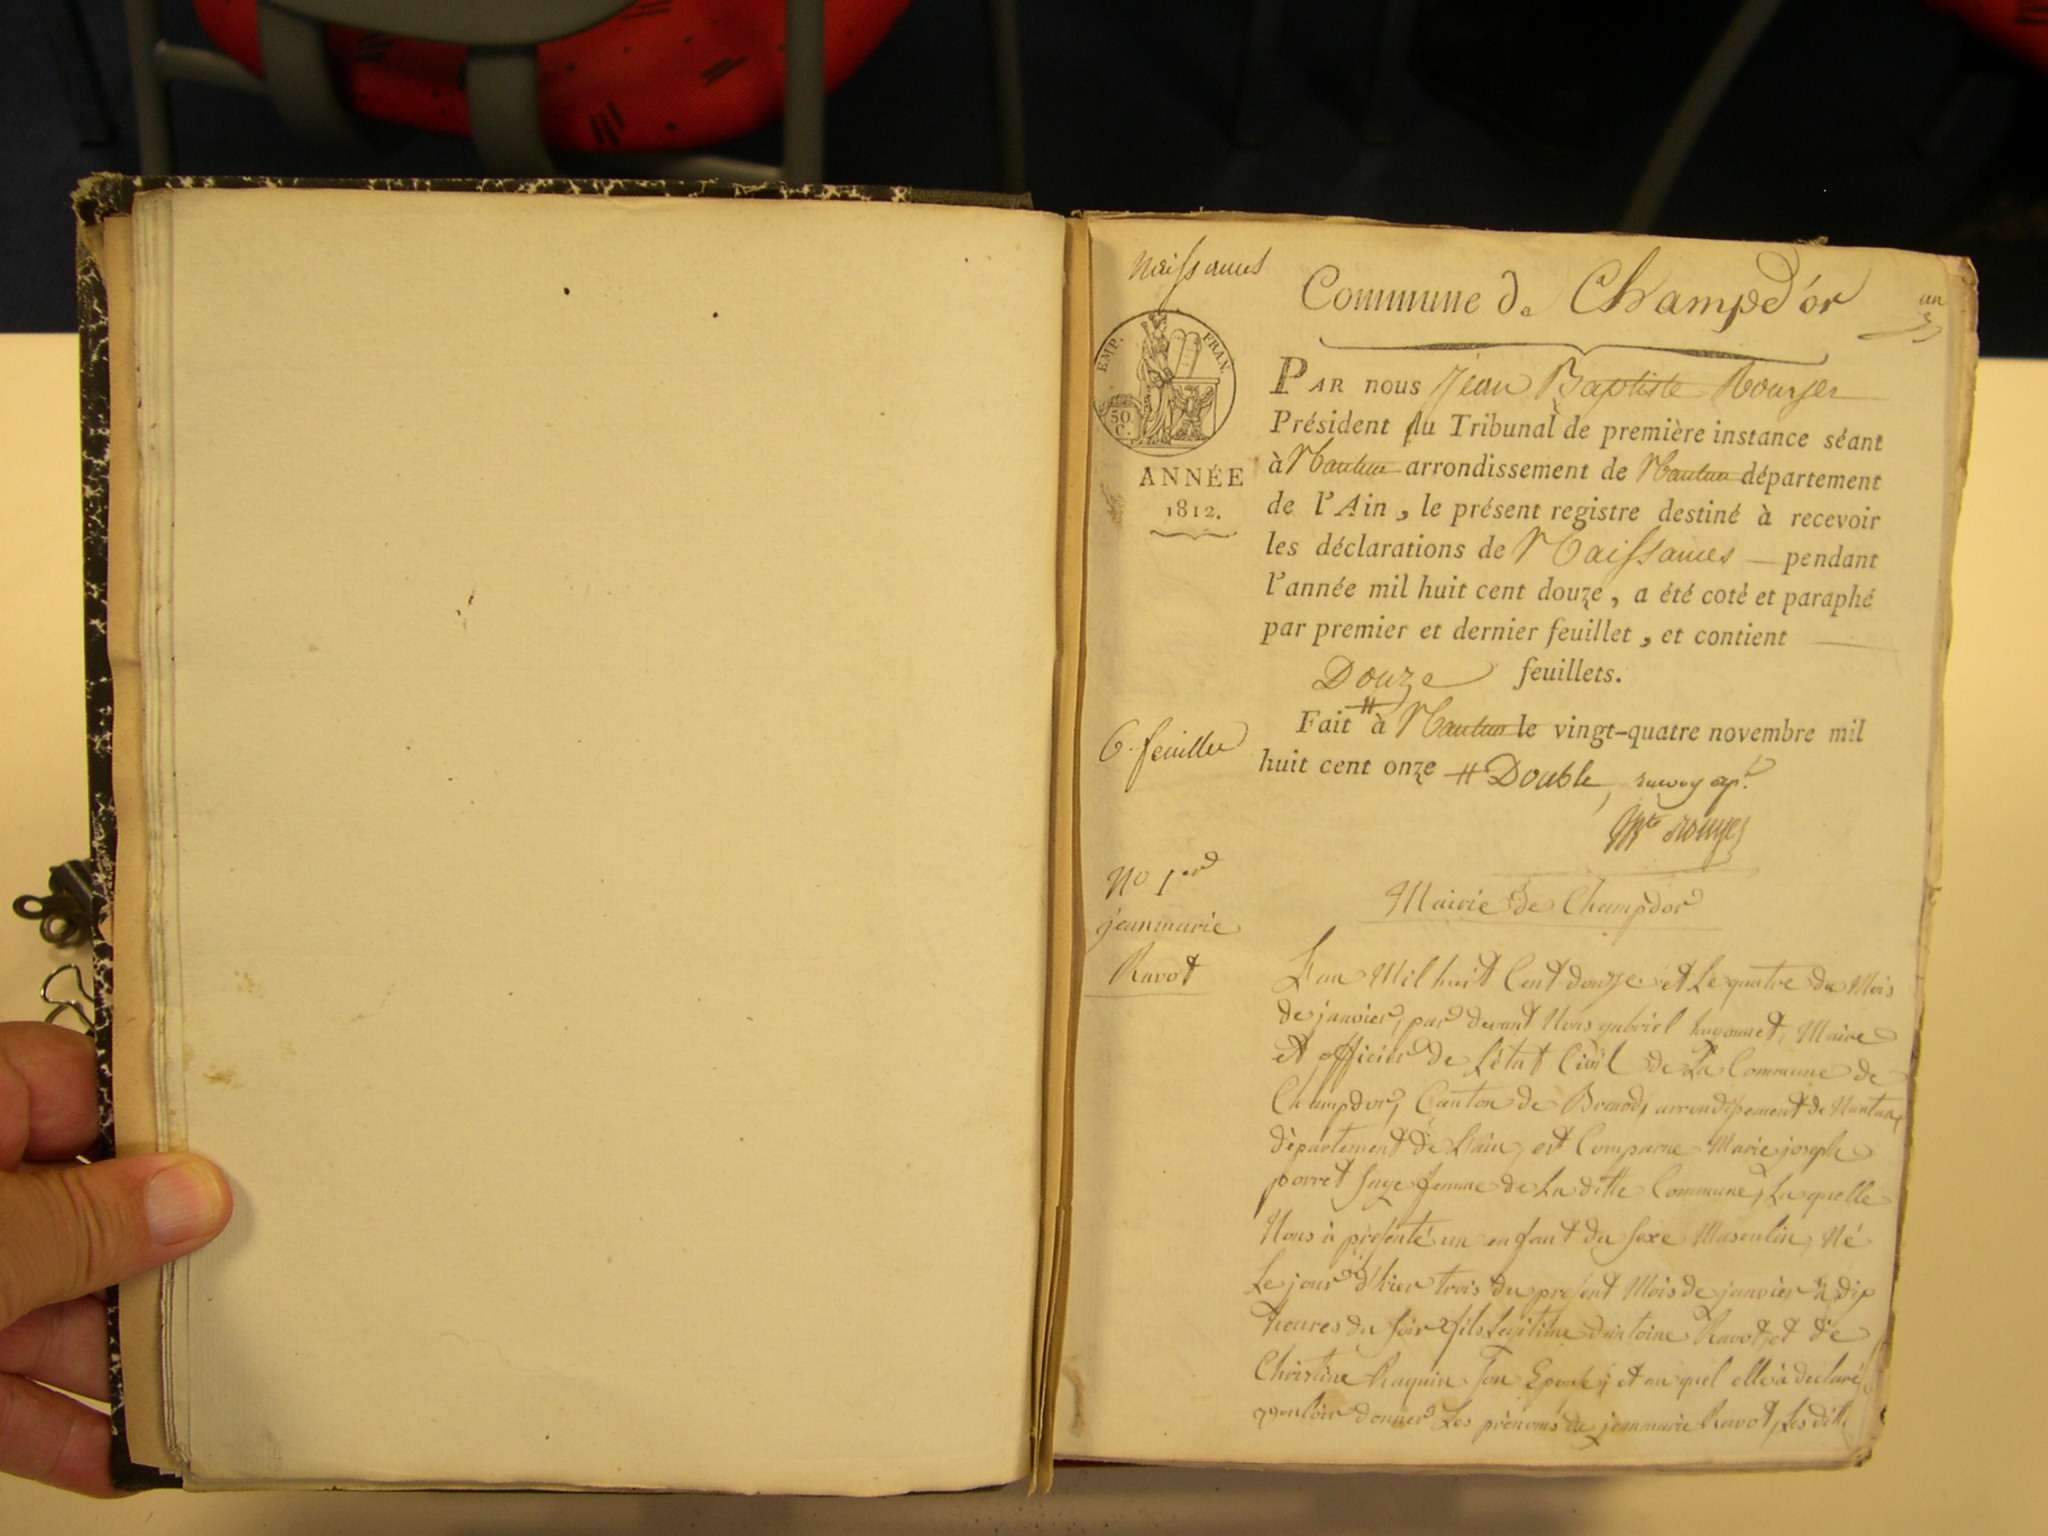 Naissances
Commune de Champd'or
un
EMP. FRAN.
50
C.
ANNÉE
1812.
PAR nous Jean Baptiste Rouyer
Président du Tribunal de première instance séant
à Nantua arrondissement de Nantua département
de l'Ain, le présent registre destiné à recevoir
les déclarations de Naissances pendant
l'année mil huit cent douze, a été coté et paraphé
par premier et dernier feuillet, et contient
Douze feuillets.
Fait à Nantua le vingt-quatre novembre mil
huit cent onze # Double,
6. feuilles
No 1er
jeanmarie
Ravot
Mairie de Champdor
L'an Mil huit Cent douze et Le quatre du Mois
de janvier, par devant Nous gabriel hugonnet, Maire
et officier de L'état Civil de La Commune de
Champdor, Canton de Brenod, arrondissement de Nantua,
département de L'ain, est Comparue Marie joseph
porret sage femme de La ditte Commune, La quelle
Nous à présenté un enfant du sexe Masculin, Né
Le jour d'hier trois du présent Mois de janvier à dix
heures du soir fils Legitime d'antoine Ravot, et de
Christine Raquin son Epouse; et au quel elle à declaré
vouloir donner Les prénoms de jeanmarie Ravot, Les ditt